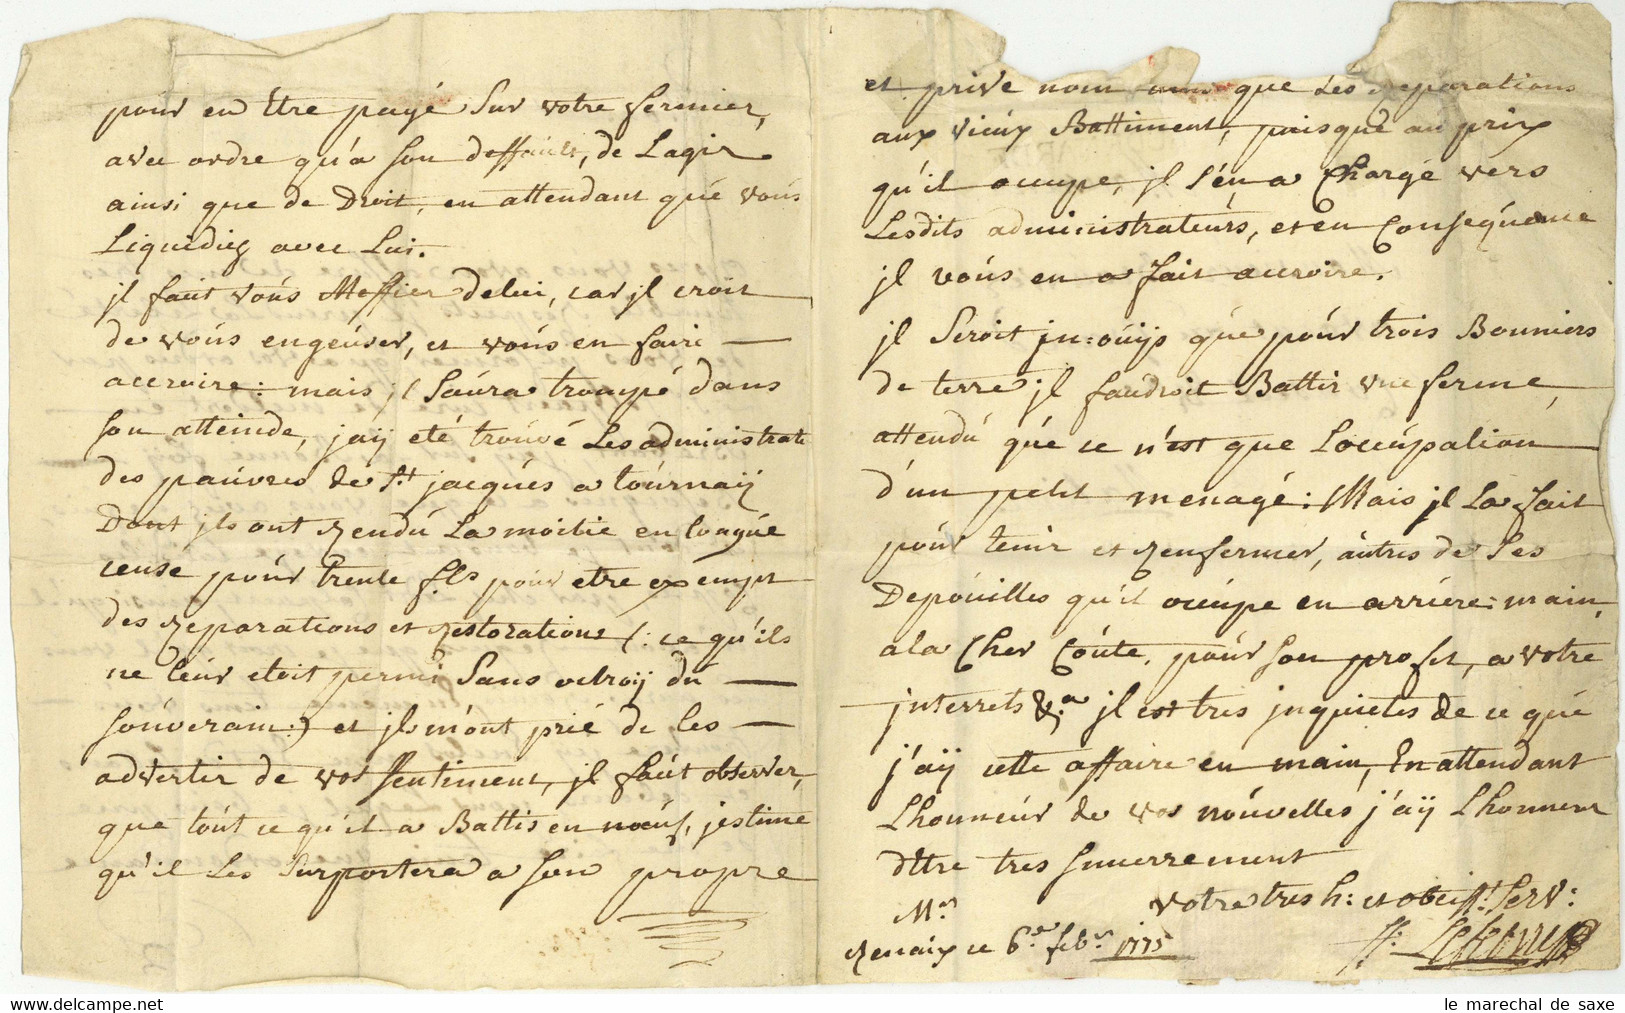 pour en Etre payé Sur votre fermier,
avec ordre qu'a son deffaut, de Lagir
ainsi que de Droit, en attendant que vous
Liquidiez avec Lui.
jl faut vous Meffier delui, car jl croit
de vous engeuser, et vous en faire —
accroire: mais jl Saura trompé dans
son atteinde, jaÿ eté trouvé Les administrat
des pauvres de St jacques a tournaÿ
Dont jls ont rendu La moitie en longue
cense pour trente fls pour etre exempt
des reparations et restorations (: ce qu'ils
ne leur etoit permi Sans octroij du —
souverain:) et jls m'ont prié de les —
advertir de vos sentiment, jl faut observer,
que tout ce qu'il a Battis en nœuf, jestime
qu'il Les Surportera a son propre
et privé nom que Les reparations
aux vieux Battiment, puisque au prix
qu'il occupe, jl s'en a Chargé vers
Lesdits administrateurs, et en Consequence
jl vous en a fait accroire.
jl Seroit jn=ouijs que pour trois Bonniers
de terre jl faudroit Battir une ferme,
attendu que ce n'est que Loccupation
d'un petit menage: Mais jl La fait
pour tenir et renfermer, autres de Ses
Depouilles qu'il occupe en arriere=main,
ala Cher Coute, pour son profit, a votre
jnterrets &.a jl est tres jnquietes de ce que
j'aÿ cette affaire en main, En attendant
Lhonneur de vos nouvelles j'aÿ Lhonneur
dEtre tres sincerrement
Votre tres h: et obeisst: Serv:
Mr
Renaix ce 6.e febr. 1775
le marechal de saxe